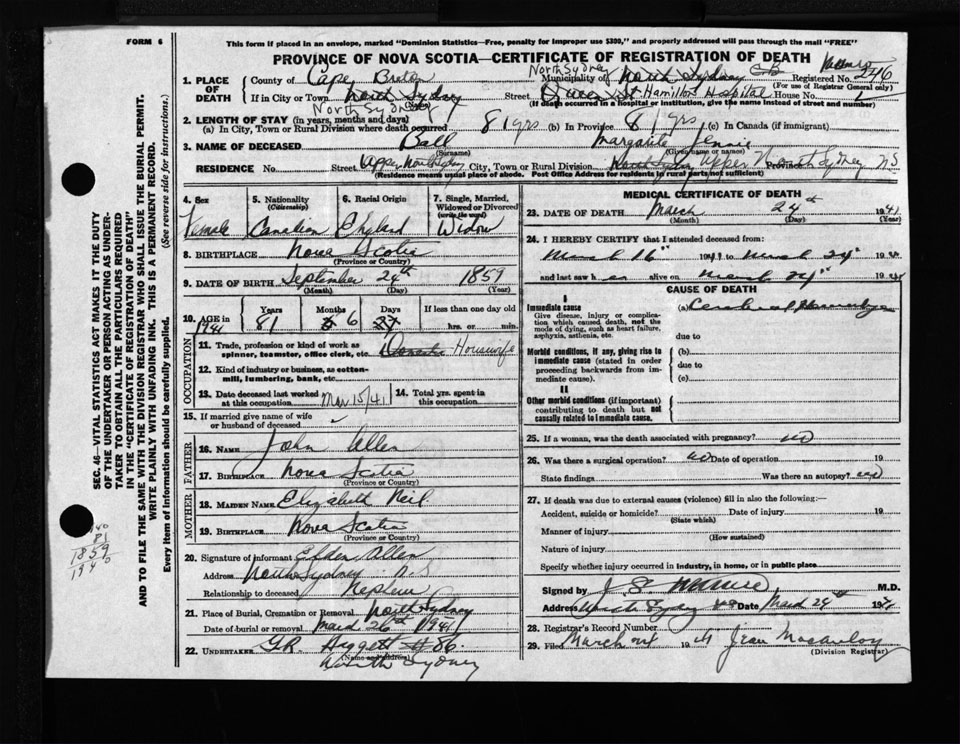 FORM 6
This form if placed in an envelope, marked "Dominion Statistics—Free, penalty for improper use $300," and properly addressed will pass through the mail "FREE"
PROVINCE OF NOVA SCOTIA—CERTIFICATE OF REGISTRATION OF DEATH
1. PLACE OF DEATH
County of Cape Breton
North Sydney
Municipality of North Sydney C B
Registered No. 246
(For use of Registrar General only)
If in City or Town North Sydney
North Sydney
Street Hamilton Hospital House No.
(If death occurred in a hospital or institution, give the name instead of street and number)
2. LENGTH OF STAY (in years, months and days)
(a) In City, Town or Rural Division where death occurred 81 yrs (b) In Province 81 yrs (c) In Canada (if immigrant)
3. NAME OF DECEASED Ball Jennie
(Surname) (Given name or names)
RESIDENCE No. Street Upper North Sydney City, Town or Rural Division Upper North Sydney Province NS
(Residence means usual place of abode. Post Office Address for residents in rural parts not sufficient)
4. Sex
Female
5. Nationality (Citizenship)
Canadian
6. Racial Origin
England
7. Single, Married, Widowed or Divorced (write the word)
Widow
8. BIRTHPLACE Nova Scotia
(Province or Country)
9. DATE OF BIRTH September 24th 1859
(Month) (Day) (Year)
10. AGE in 1941
Years 81 Months 6 Days If less than one day old
hrs. or min.
OCCUPATION
11. Trade, profession or kind of work as spinner, teamster, office clerk, etc. Housewife
12. Kind of industry or business, as cotton-mill, lumbering, bank, etc.
13. Date deceased last worked at this occupation Mar 15/41
14. Total yrs. spent in this occupation
15. If married give name of wife or husband of deceased
FATHER
16. NAME John Allen
17. BIRTHPLACE Nova Scotia
(Province or Country)
MOTHER
18. MAIDEN NAME Elizabeth Neil
19. BIRTHPLACE Nova Scotia
(Province or Country)
20. Signature of informant Allen
Address North Sydney N.S
Relationship to deceased Nephew
21. Place of Burial, Cremation or Removal North Sydney
Date of burial or removal March 26th 1941
22. UNDERTAKER
(Name and address)
North Sydney
MEDICAL CERTIFICATE OF DEATH
23. DATE OF DEATH March 24th 1941
(Month) (Day) (Year)
24. I HEREBY CERTIFY that I attended deceased from:
March 16" 1941 to March 24" 19
and last saw h er alive on March 24" 19
CAUSE OF DEATH
I
Immediate cause
Give disease, injury or complication which caused death, not the mode of dying, such as heart failure, asphyxia, asthenia, etc.
(a) Cerebral Hemorrhage
due to
Morbid conditions, if any, giving rise to immediate cause (stated in order proceeding backwards from immediate cause).
(b)
due to
(c)
II
Other morbid conditions (if important) contributing to death but not causally related to immediate cause.
25. If a woman, was the death associated with pregnancy? no
26. Was there a surgical operation? no Date of operation 19
State findings Was there an autopsy? no
27. If death was due to external causes (violence) fill in also the following:—
Accident, suicide or homicide? Date of injury 19
(State which)
Manner of injury
(How sustained)
Nature of injury
Specify whether injury occurred in industry, in home, or in public place
Signed by M.D.
Address North Sydney NS Date March 24th 19
28. Registrar's Record Number
29. Filed March 19 41 Jean
(Division Registrar)
SEC. 46—VITAL STATISTICS ACT MAKES IT THE DUTY
OF THE UNDERTAKER OR PERSON ACTING AS UNDERTAKER TO OBTAIN ALL THE PARTICULARS REQUIRED
IN THE "CERTIFICATE OF REGISTRATION OF DEATH"
AND TO FILE THE SAME WITH THE DIVISION REGISTRAR WHO SHALL ISSUE THE BURIAL PERMIT.
WRITE PLAINLY WITH UNFADING INK. THIS IS A PERMANENT RECORD.
Every item of information should be carefully supplied. (See reverse side for instructions.)
81
1859
1940